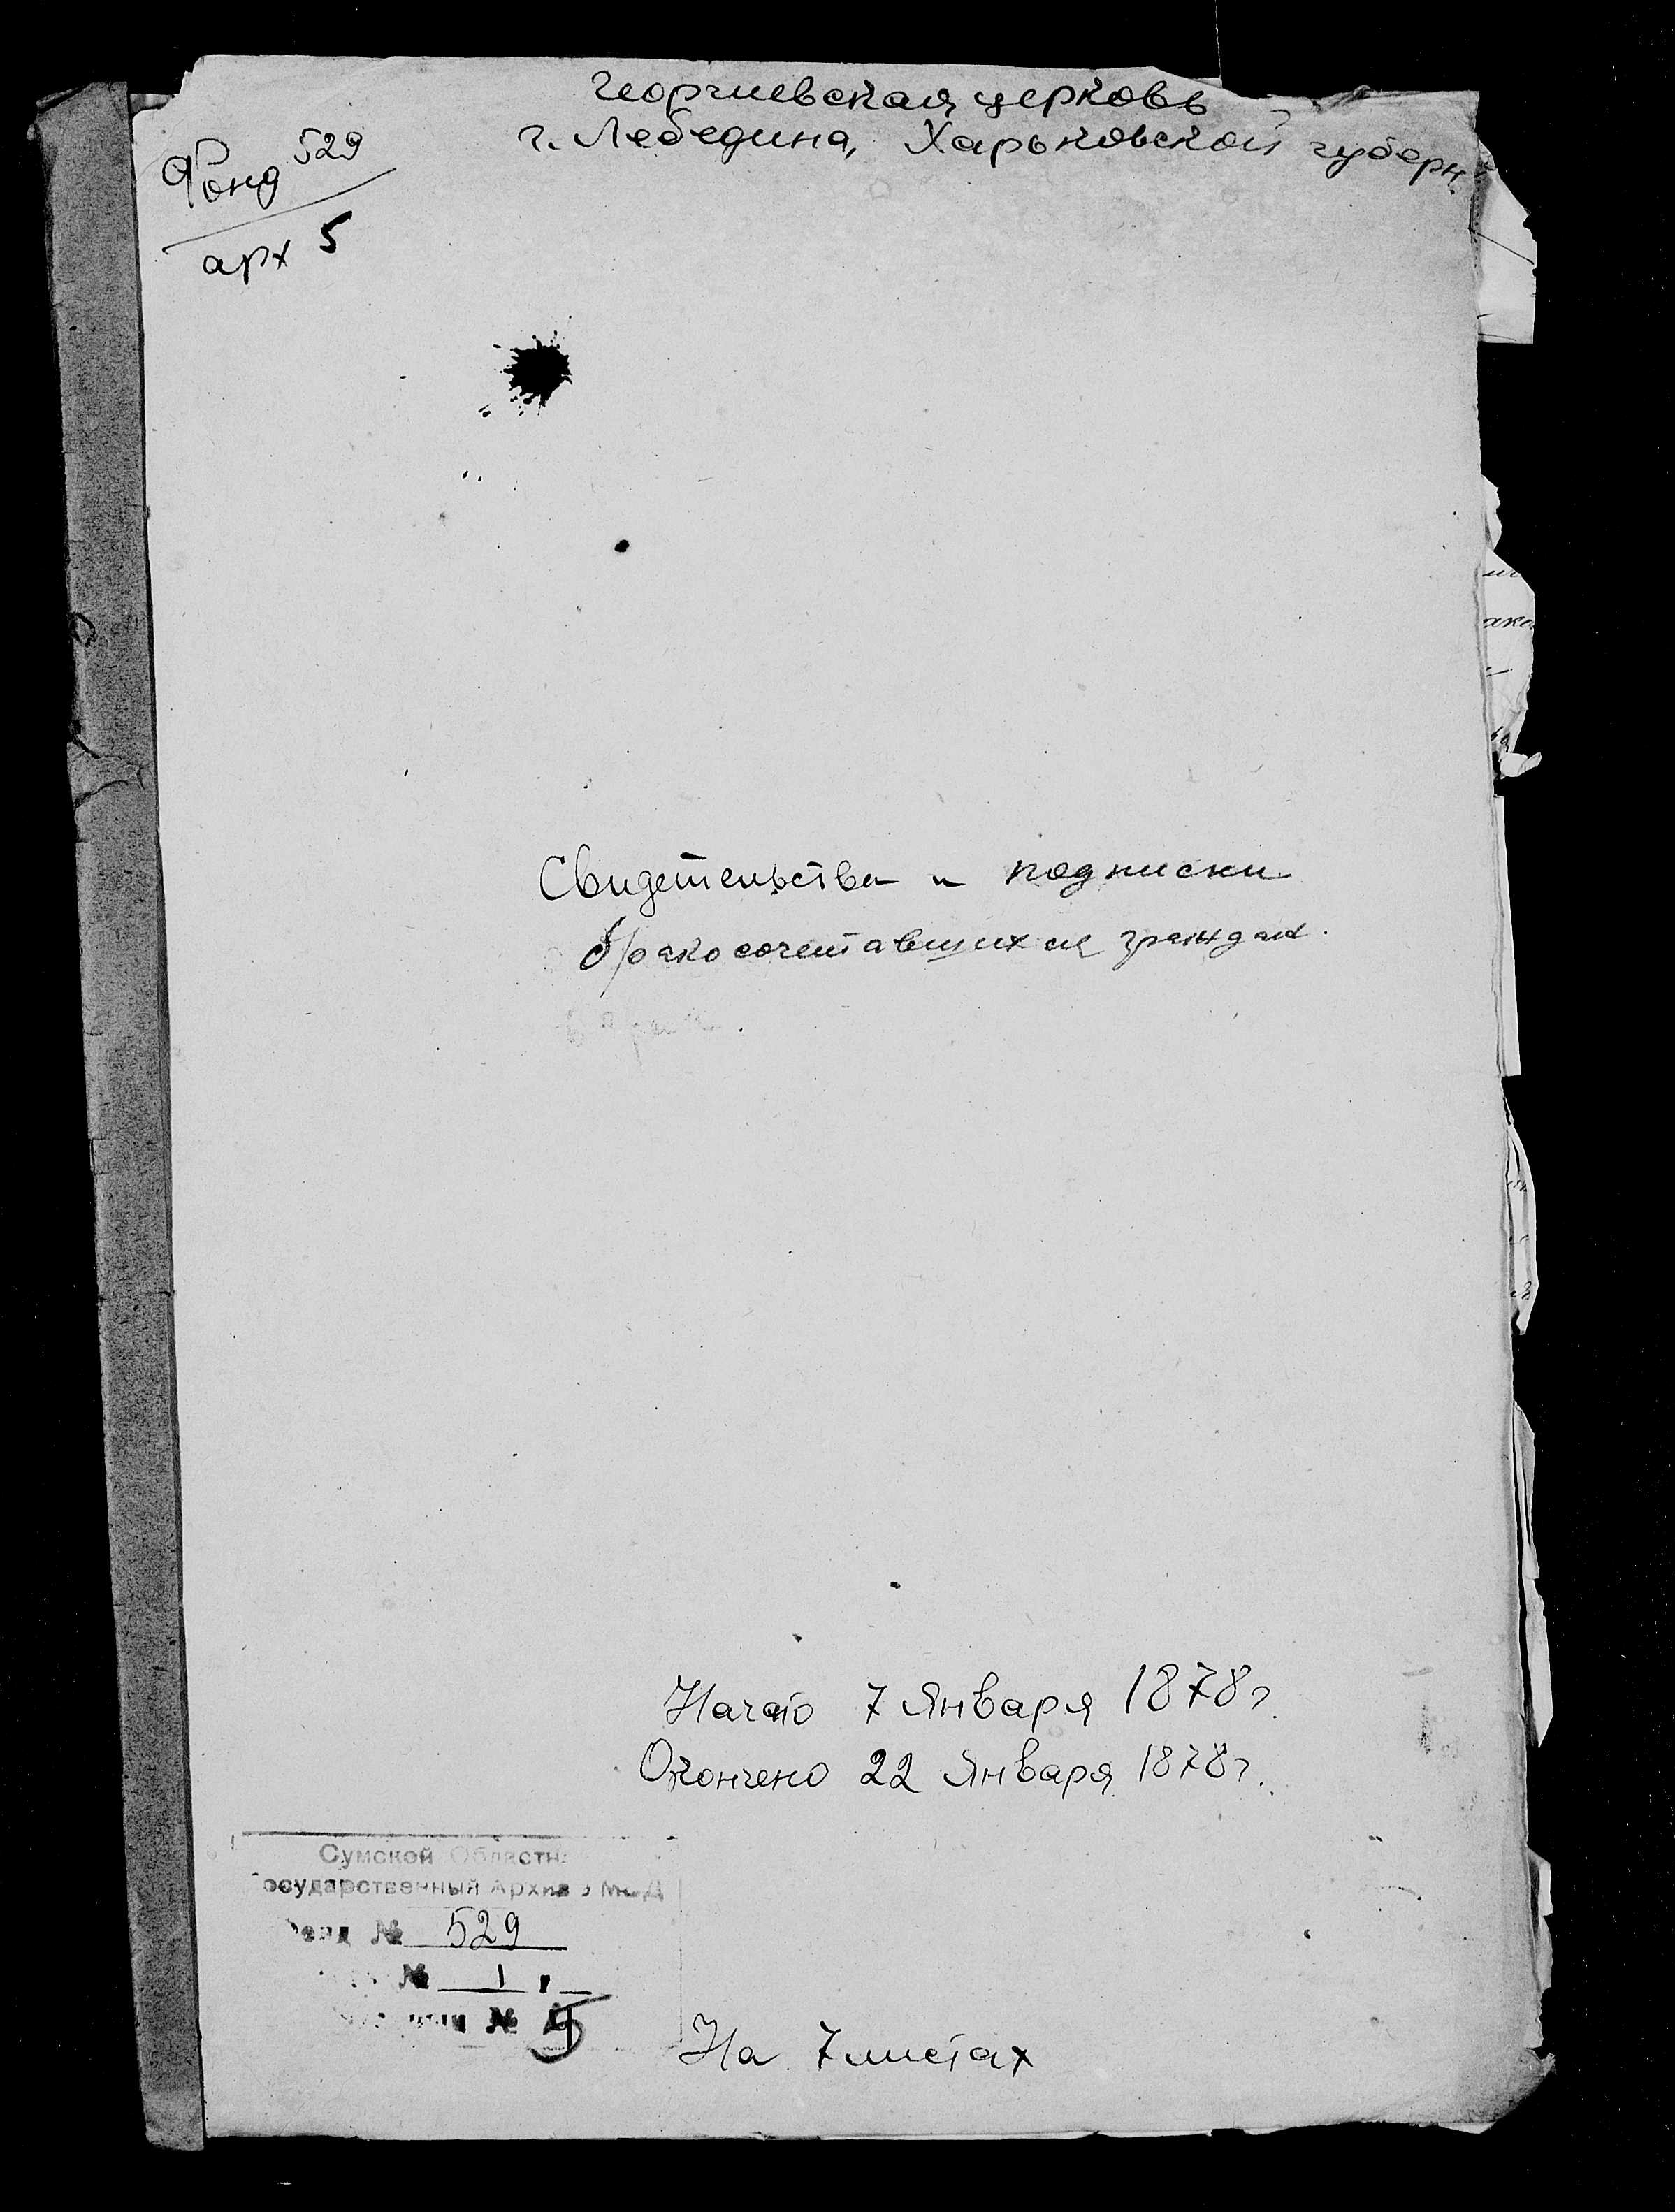 Георгиевская церковь
г. Лебедина, Харьковской губерн.
Фонд 529
арх 5
Свидетельства и подписки
бракосочетавшихся граждан.
Начато 7 Января 1878 г.
Окончено 22 Января 1878 г.
Сумской Областн
осударственный Архив МВД
онд № 529
№ 1
№ 5
На 7 листах